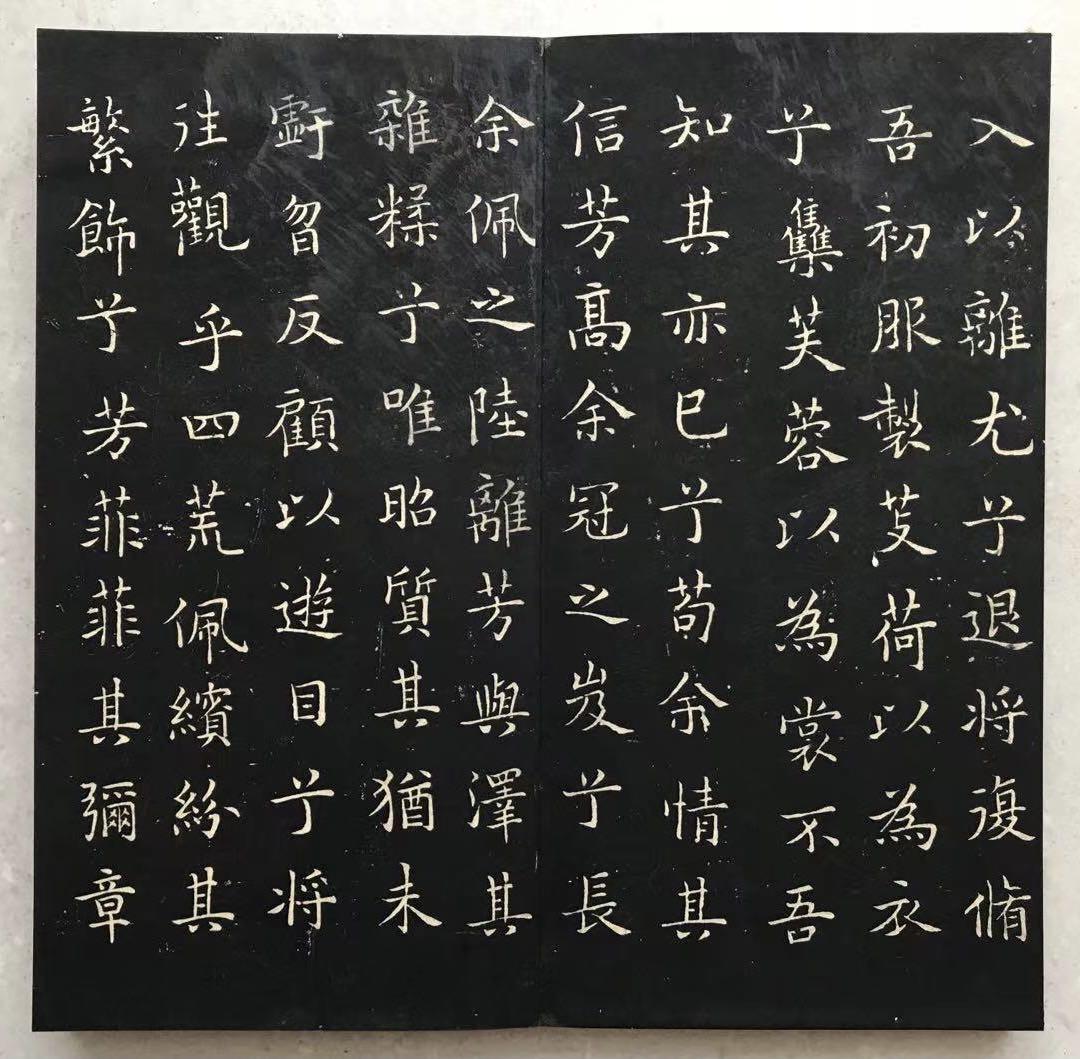 入以離尤兮退将復脩
吾初服製芰荷以為衣
兮雧芙蓉以為裳不吾
知其亦已兮苟余情其
信芳高余冠之岌兮長
余佩之陸離芳與澤其
雜糅兮唯昭質其猶未
虧曶反顧以遊目兮将
往觀乎四荒佩繽紛其
繁飾兮芳菲菲其彌章